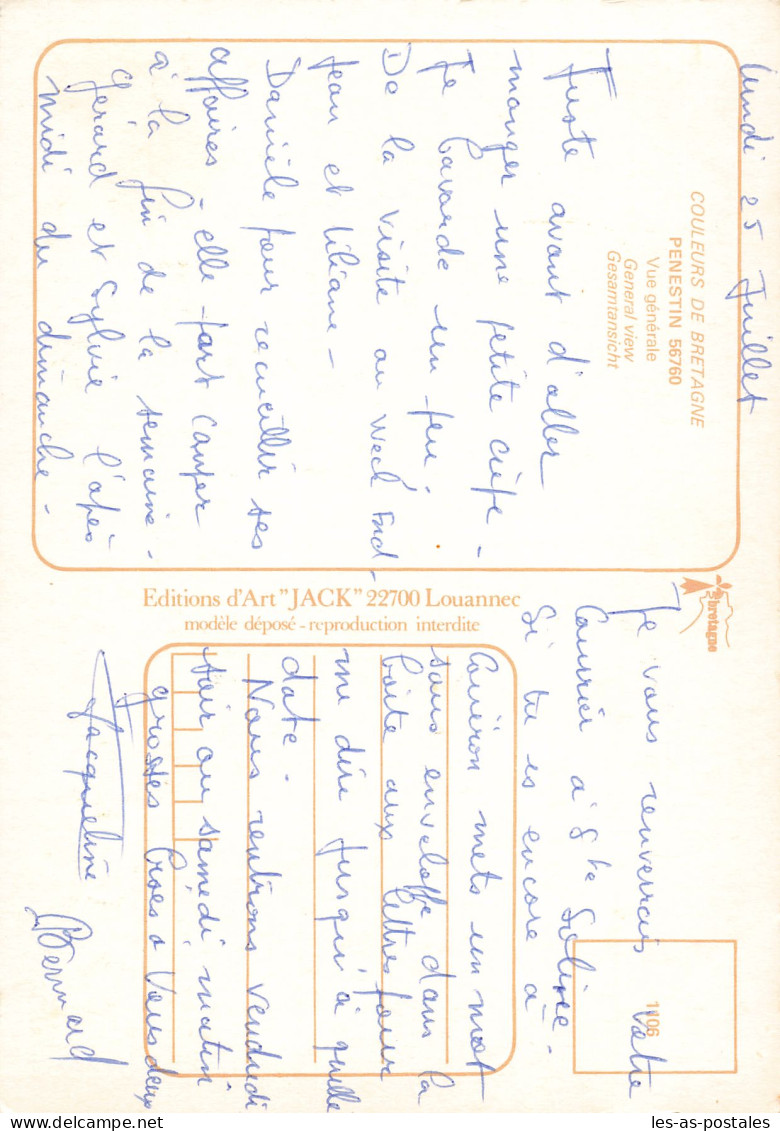 Lundi 25 Juillet
COULEURS DE BRETAGNE
PENESTIN 56760
Vue générale
General view
Gesamtansicht
Juste avant d'aller
manger une petite crêpe -
Je bavarde un peu.
De la visite au Week End -
Jean et Liliane -
Danièle pour recueillir ses
affaires - elle part camper
à la fin de la semaine -
Gérard et Sylvie l'après
midi du dimanche -
bretagne
Editions d'Art "JACK" 22700 Louannec
modèle déposé - reproduction interdite
1106
Je vous renverrais votre
Courrier à Ste Soline
Si tu es encore à -
Guéron mets un mot
sous enveloppe dans la
boîte aux lettres pour
me dire jusqu'à quelle
date -
Nous rentrons vendredi
soir ou samedi matin
grosses bises à Vous deux
Jacqueline
Bernard
les-as-postales